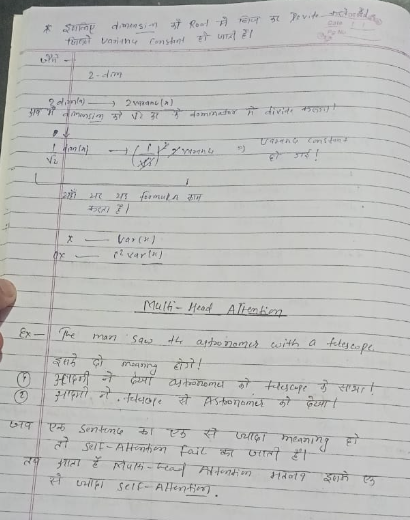 * इसलिए dimension को Root में लिख कर Devide करते हैं।
जिससे variance constant हो जाते हैं।
जैसे -
2-dim
2 dim(x) → 2 varianc(x)
अब में dimension को √2 से dominator में divide करूंगा।
1/√2 dim(x) → (1/√2)² 2 varianc ⇒ varianc constant
हो गई!
यहाँ पर यह formula काम
करता है।
x — var(x)
cx — c² var(x)
Multi-Head Attention
Ex- The man saw the astronomer with a telescope
इसके दो meaning होंगे!
① आदमी ने देखा astronomer को telescope के साथ।
② आदमी ने telescope से Astronomer को देखा।
जब एक sentence का एक से ज्यादा meaning हो
तो self-Attention fail हो जाता है।
तब आता है Multi-head Attention मतलब इसमें एक
से ज्यादा self-Attention.